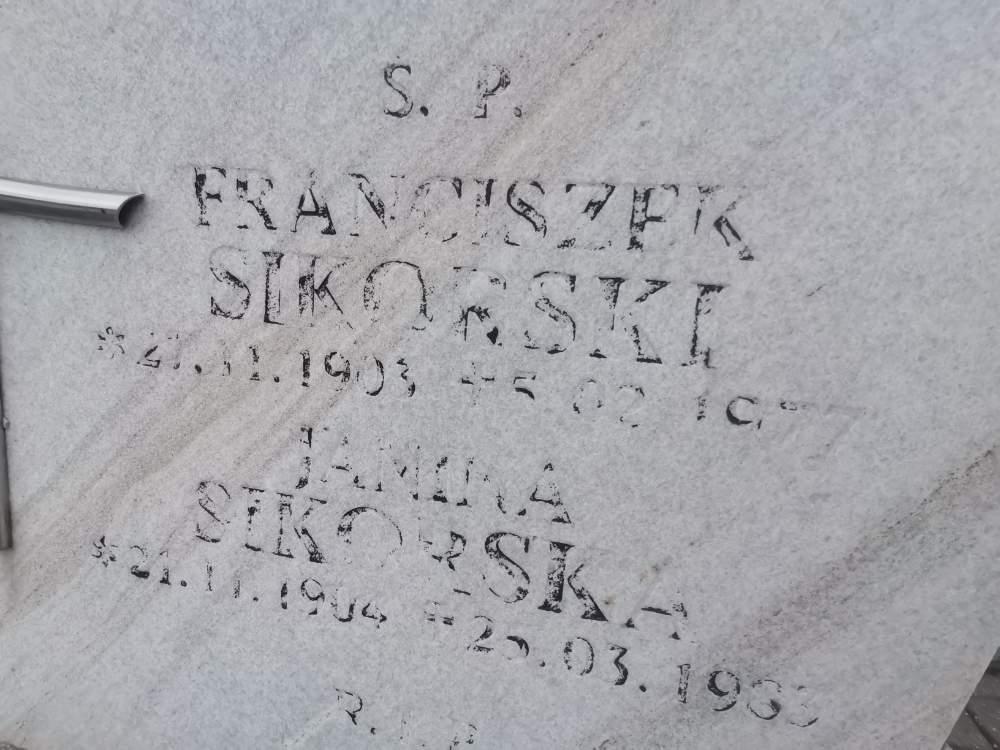 S. P.
FRANCISZEK
SIKORSKI
*21.11.1903 +5.02.1977
JANINA
SIKORSKA
*21.11.1904 +25.03.1983
R.I.P.